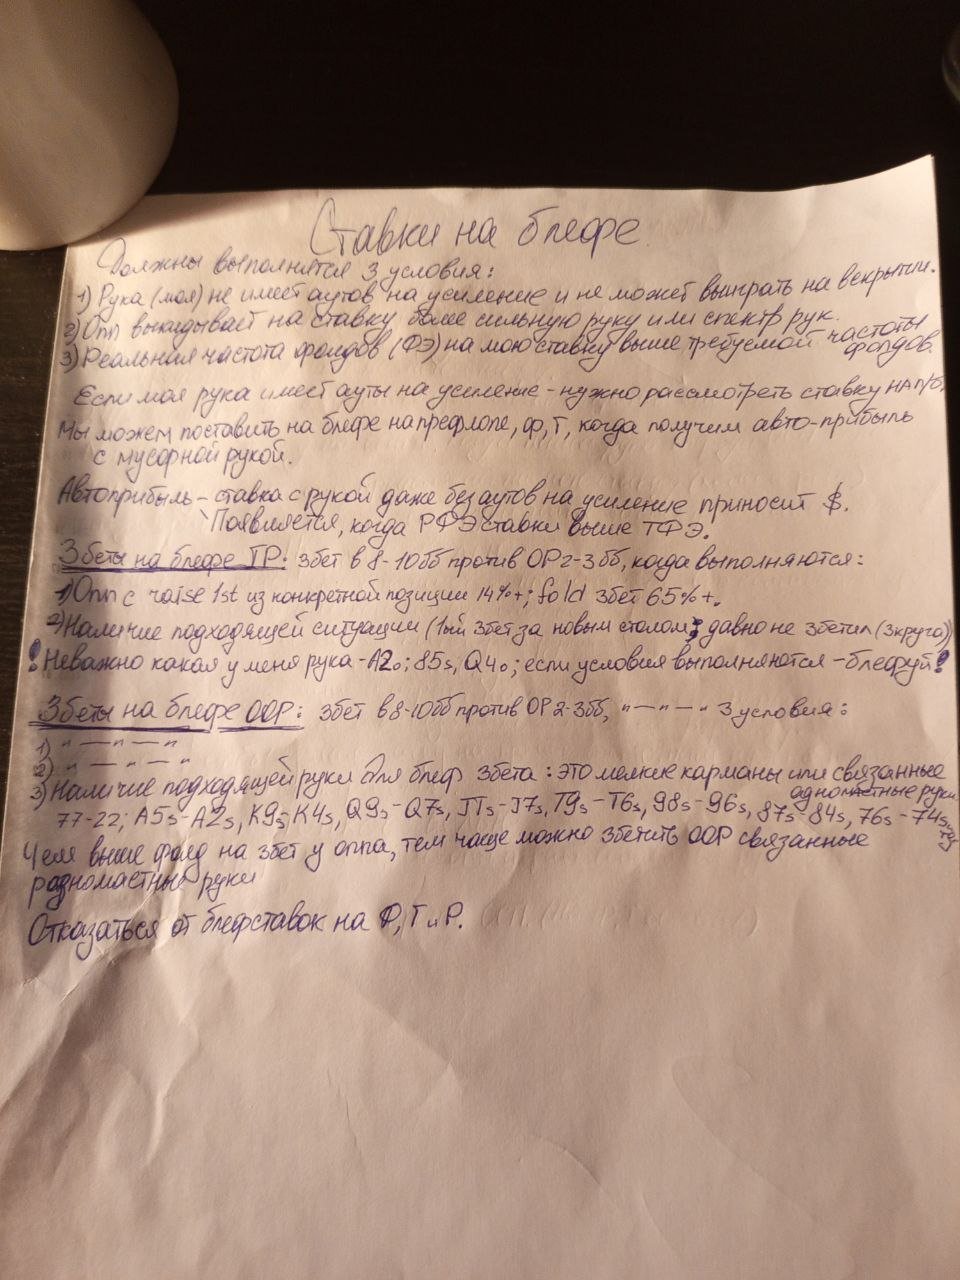 Ставки на блефе
Должны выполнятся 3 условия:
1) Рука (моя) не имеет аутов на усиление и не может выиграть на вскрытии.
2) Опп выкидывает на ставку более сильную руку или спектр рук.
3) Реальная частота фолдов (ФЭ) на мою ставку выше требуемой частоты
фолдов.
Если моя рука имеет ауты на усиление - нужно рассмотреть ставку на п/б.
Мы можем поставить на блефе на префлопе, ф, Т, когда получим авто-прибыль
с мусорной рукой.
Автоприбыль - ставка с рукой даже без аутов на усиление приносит $.
Появляется, когда РФЭ ставки выше ТФЭ.
3беты на блефе IP: 3бет в 8-10бб против ОР 2-3бб, когда выполняются:
1) Опп с raise 1st из конкретной позиции 14%+; fold 3бет 65%+.
2) Наличие подходящей ситуации (1ый 3бет за новым столом; давно не 3бетил (3круга))
! Неважно какая у меня рука - A2o; 85s, Q4o; если условия выполняются - блефуй!
3беты на блефе OOP: 3бет в 8-10бб против ОР 2-3бб, " — " — " 3 условия:
1) " — " — "
2) " — " — "
3) Наличие подходящей руки для блеф 3бета: это мелкие карманы или связанные
одномастные руки
77-22; A5s-A2s, K9s-K4s, Q9s-Q7s, JTs-J7s, T9s-T6s, 98s-96s, 87s-84s, 76s-74s,
Чем выше фолд на 3бет у оппа, тем чаще можно 3бетить OOP связанные
разномастные руки
Отказаться от блефставок на Ф, Т и Р.